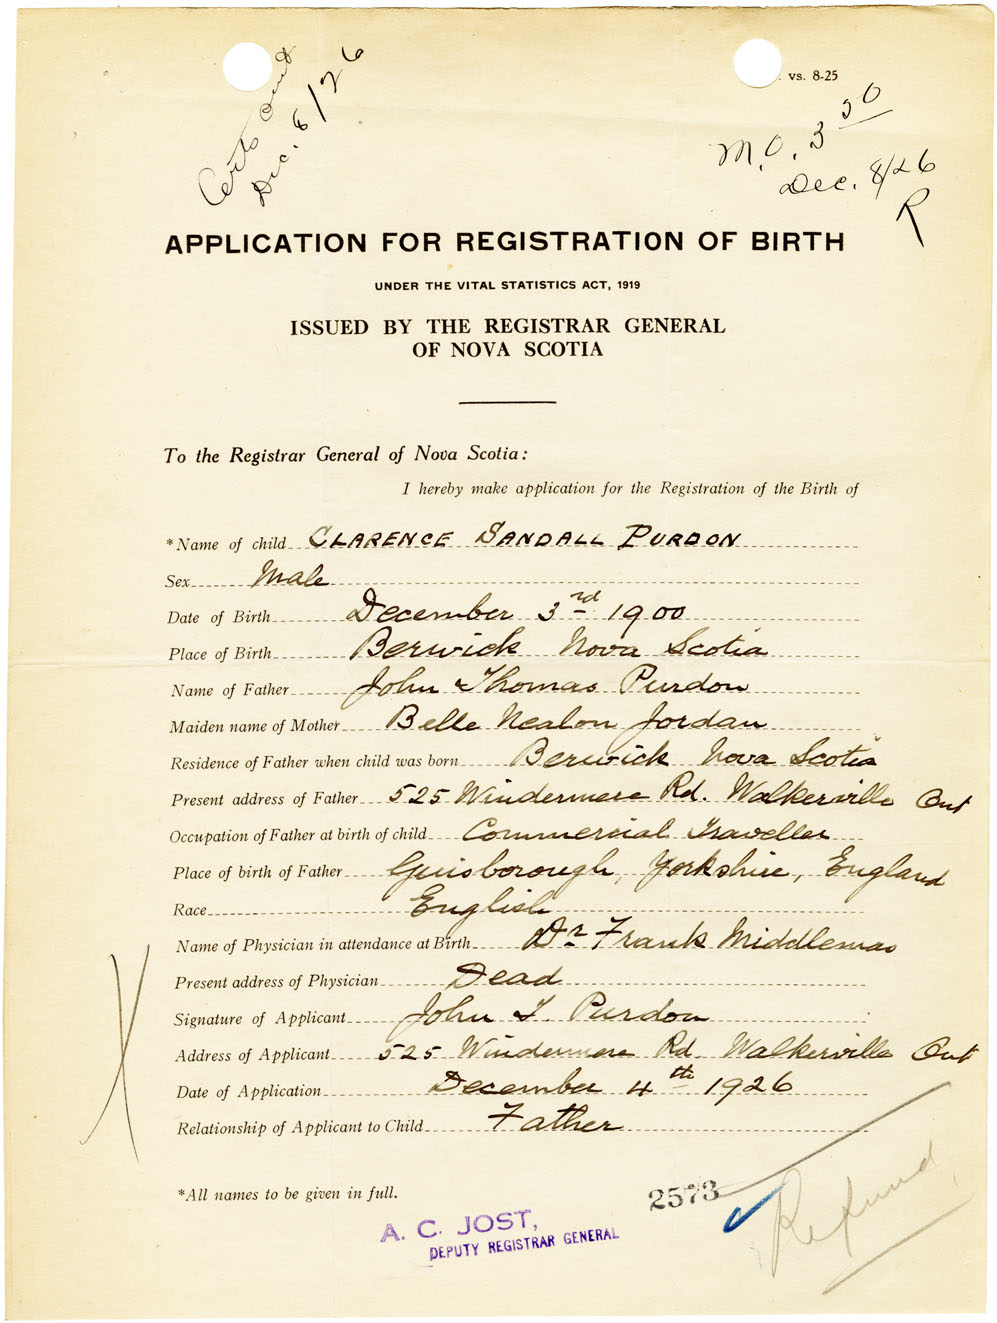 Certs sent
Dec. 8/26
. vs. 8-25
M.O. 3 50
Dec. 8/26
R
APPLICATION FOR REGISTRATION OF BIRTH
UNDER THE VITAL STATISTICS ACT, 1919
ISSUED BY THE REGISTRAR GENERAL
OF NOVA SCOTIA
To the Registrar General of Nova Scotia:
I hereby make application for the Registration of the Birth of
*Name of child CLARENCE SANDALL PURDON
Sex Male
Date of Birth December 3rd 1900
Place of Birth Berwick Nova Scotia
Name of Father John Thomas Purdon
Maiden name of Mother Belle Nealon Jordan
Residence of Father when child was born Berwick Nova Scotia
Present address of Father 525 Windermere Rd. Walkerville Ont
Occupation of Father at birth of child Commercial Traveller
Place of birth of Father Guisborough, Yorkshire, England
Race English
Name of Physician in attendance at Birth Dr Frank Middlemas
Present address of Physician Dead
Signature of Applicant John T. Purdon
Address of Applicant 525 Windermere Rd Walkerville Ont
Date of Application December 4th 1926
Relationship of Applicant to Child Father
*All names to be given in full.
2573
Refund
A. C. JOST,
DEPUTY REGISTRAR GENERAL